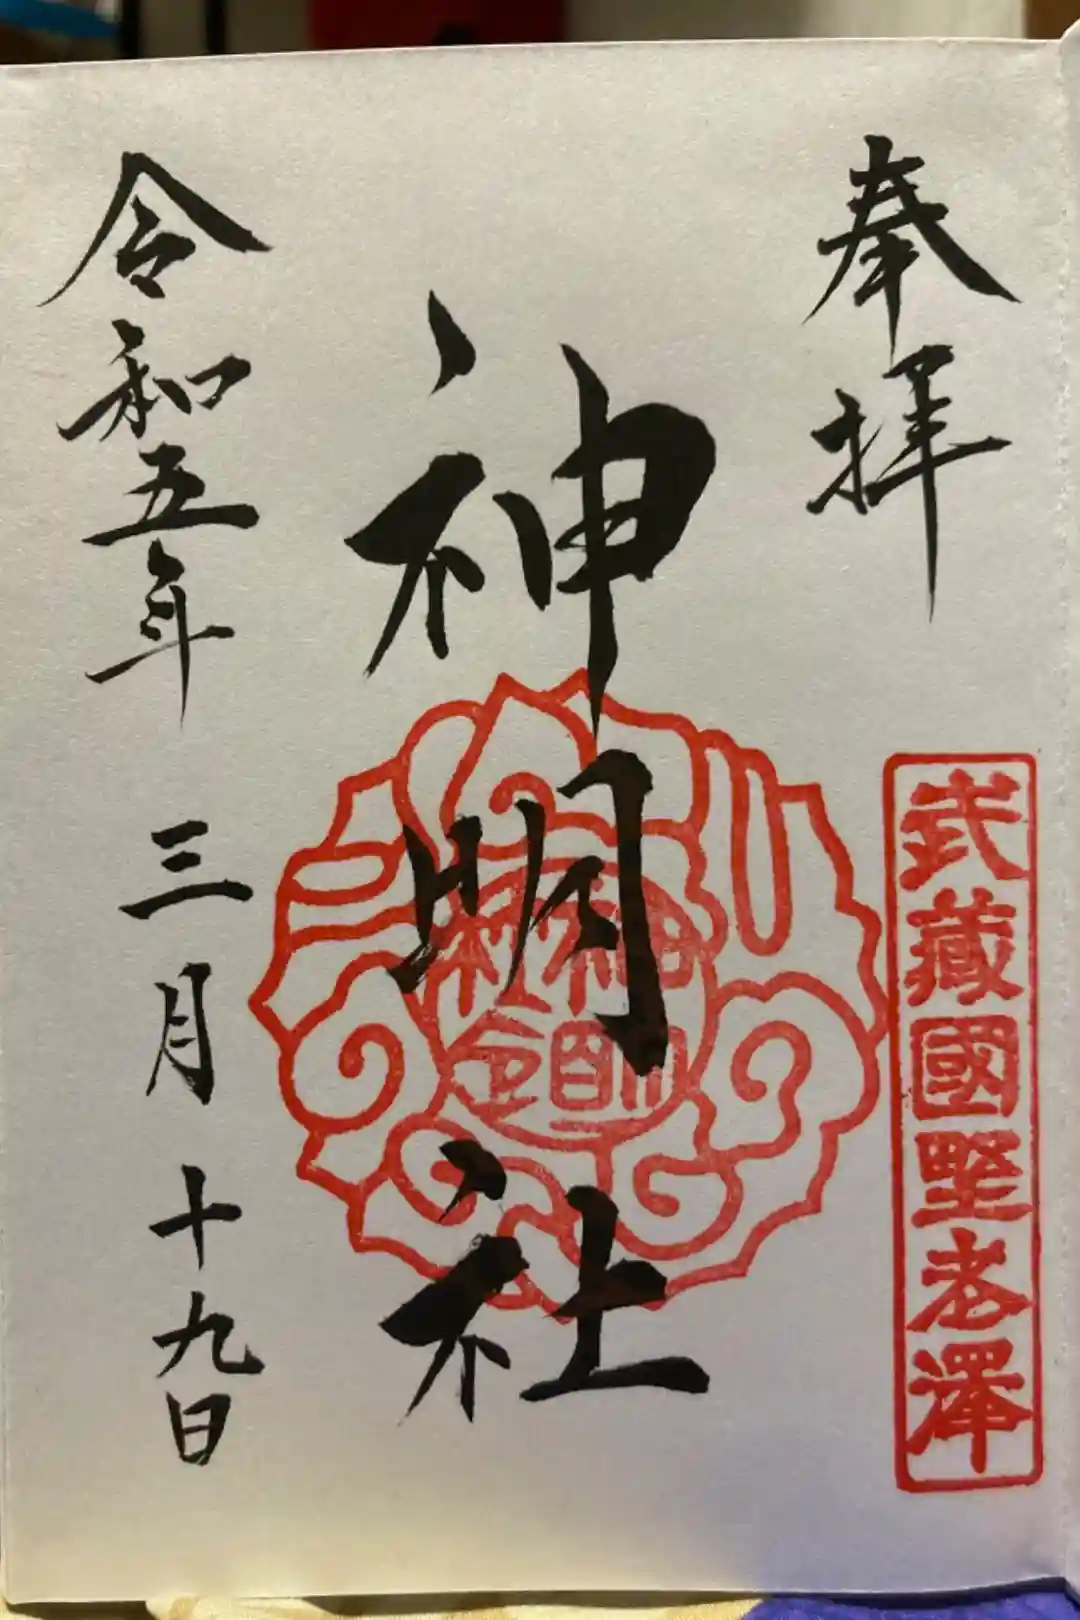 奉拝
武藏國野老澤
神明社
令和五年 三月 十九日